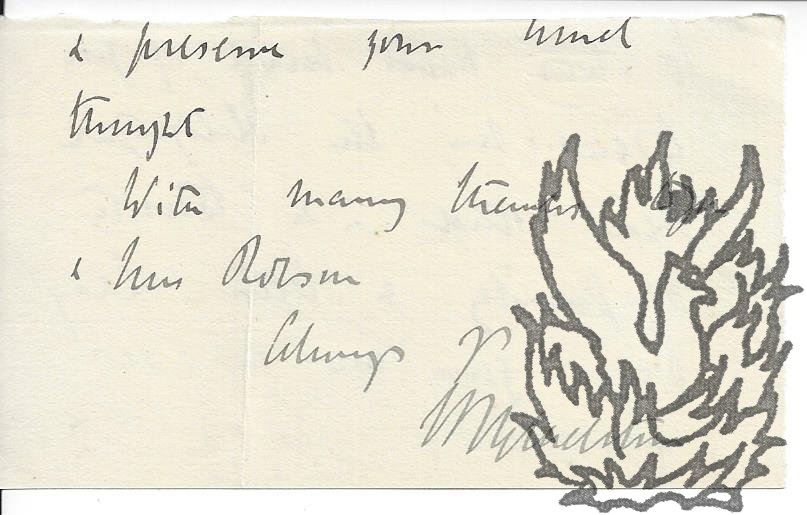 & preserve your kind
thought
With many thanks to you
& Mrs Robson
Always